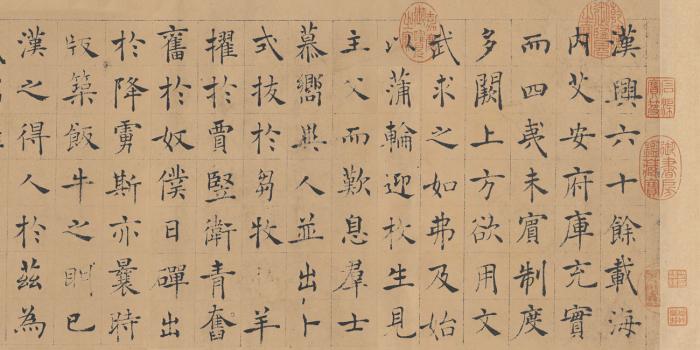 漢興六十餘載海
内艾安府庫充實
而四夷未賓制度
多闕上方欲用文
武求之如弗及始
以蒲輪迎枚生見
主父而歎息羣士
慕嚮異人並出卜
式拔於芻牧羊
擢於賈豎衛青奮
舊於奴僕日磾出
於降虜斯亦曩時
版築飯牛之朋已
漢之得人於茲為